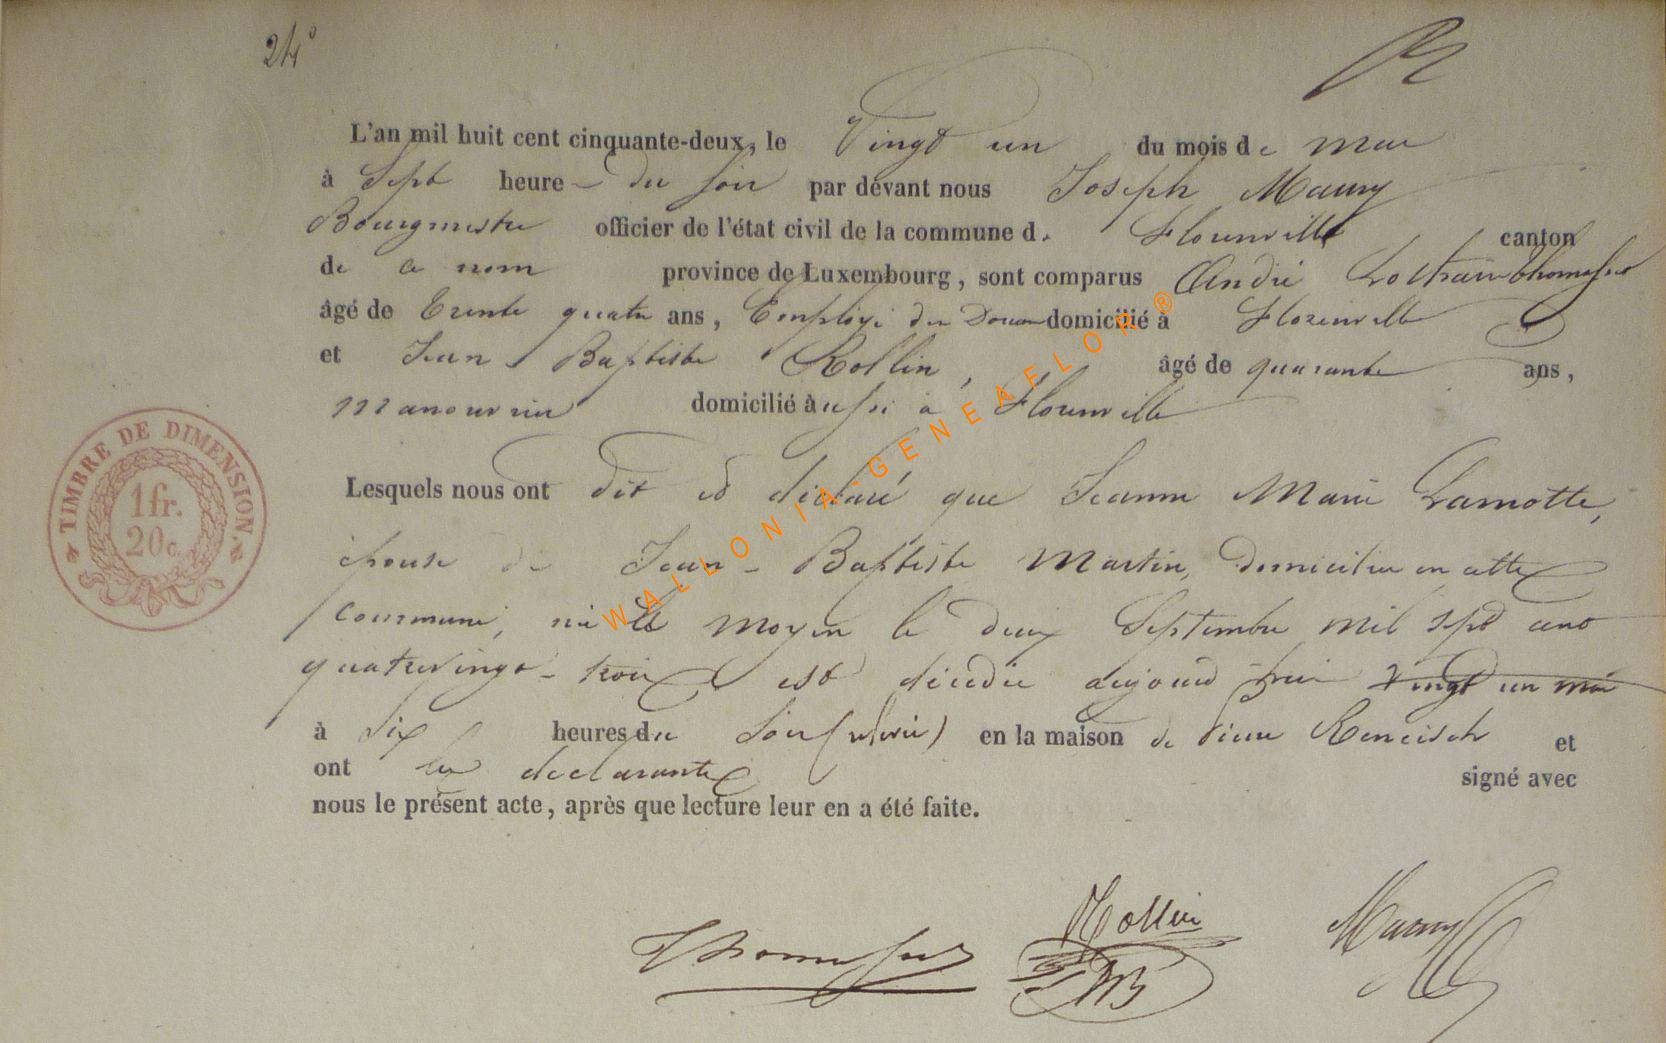 24°
L'an mil huit cent cinquante-deux, le Vingt un du mois de mai
à Sept heure du soir par devant nous Joseph Maury
Bourgmestre officier de l'état civil de la commune d. Florenville canton
de ce nom province de Luxembourg, sont comparus André
âgé de Trente quatre ans, Employé des Douanes domicilié à Florenville
et Jean Baptiste Rollin, âgé de quarante ans,
manouvrier domicilié aussi à Florenville
Lesquels nous ont dit et déclaré que Jeanne Marie Lamotte,
épouse de Jean-Baptiste Martin, domiciliée en cette
commune, née moyen le deux Septembre mil sept cent
quatrevingt-trois est décédée aujourd'hui vingt un mai
à six heures du Soir en la maison de et
ont les déclarants signé avec
nous le présent acte, après que lecture leur en a été faite.
Rollin
JB
Maury
TIMBRE DE DIMENSION.
1 fr.
20 c.
WALLONIA-GENEAFLOR®